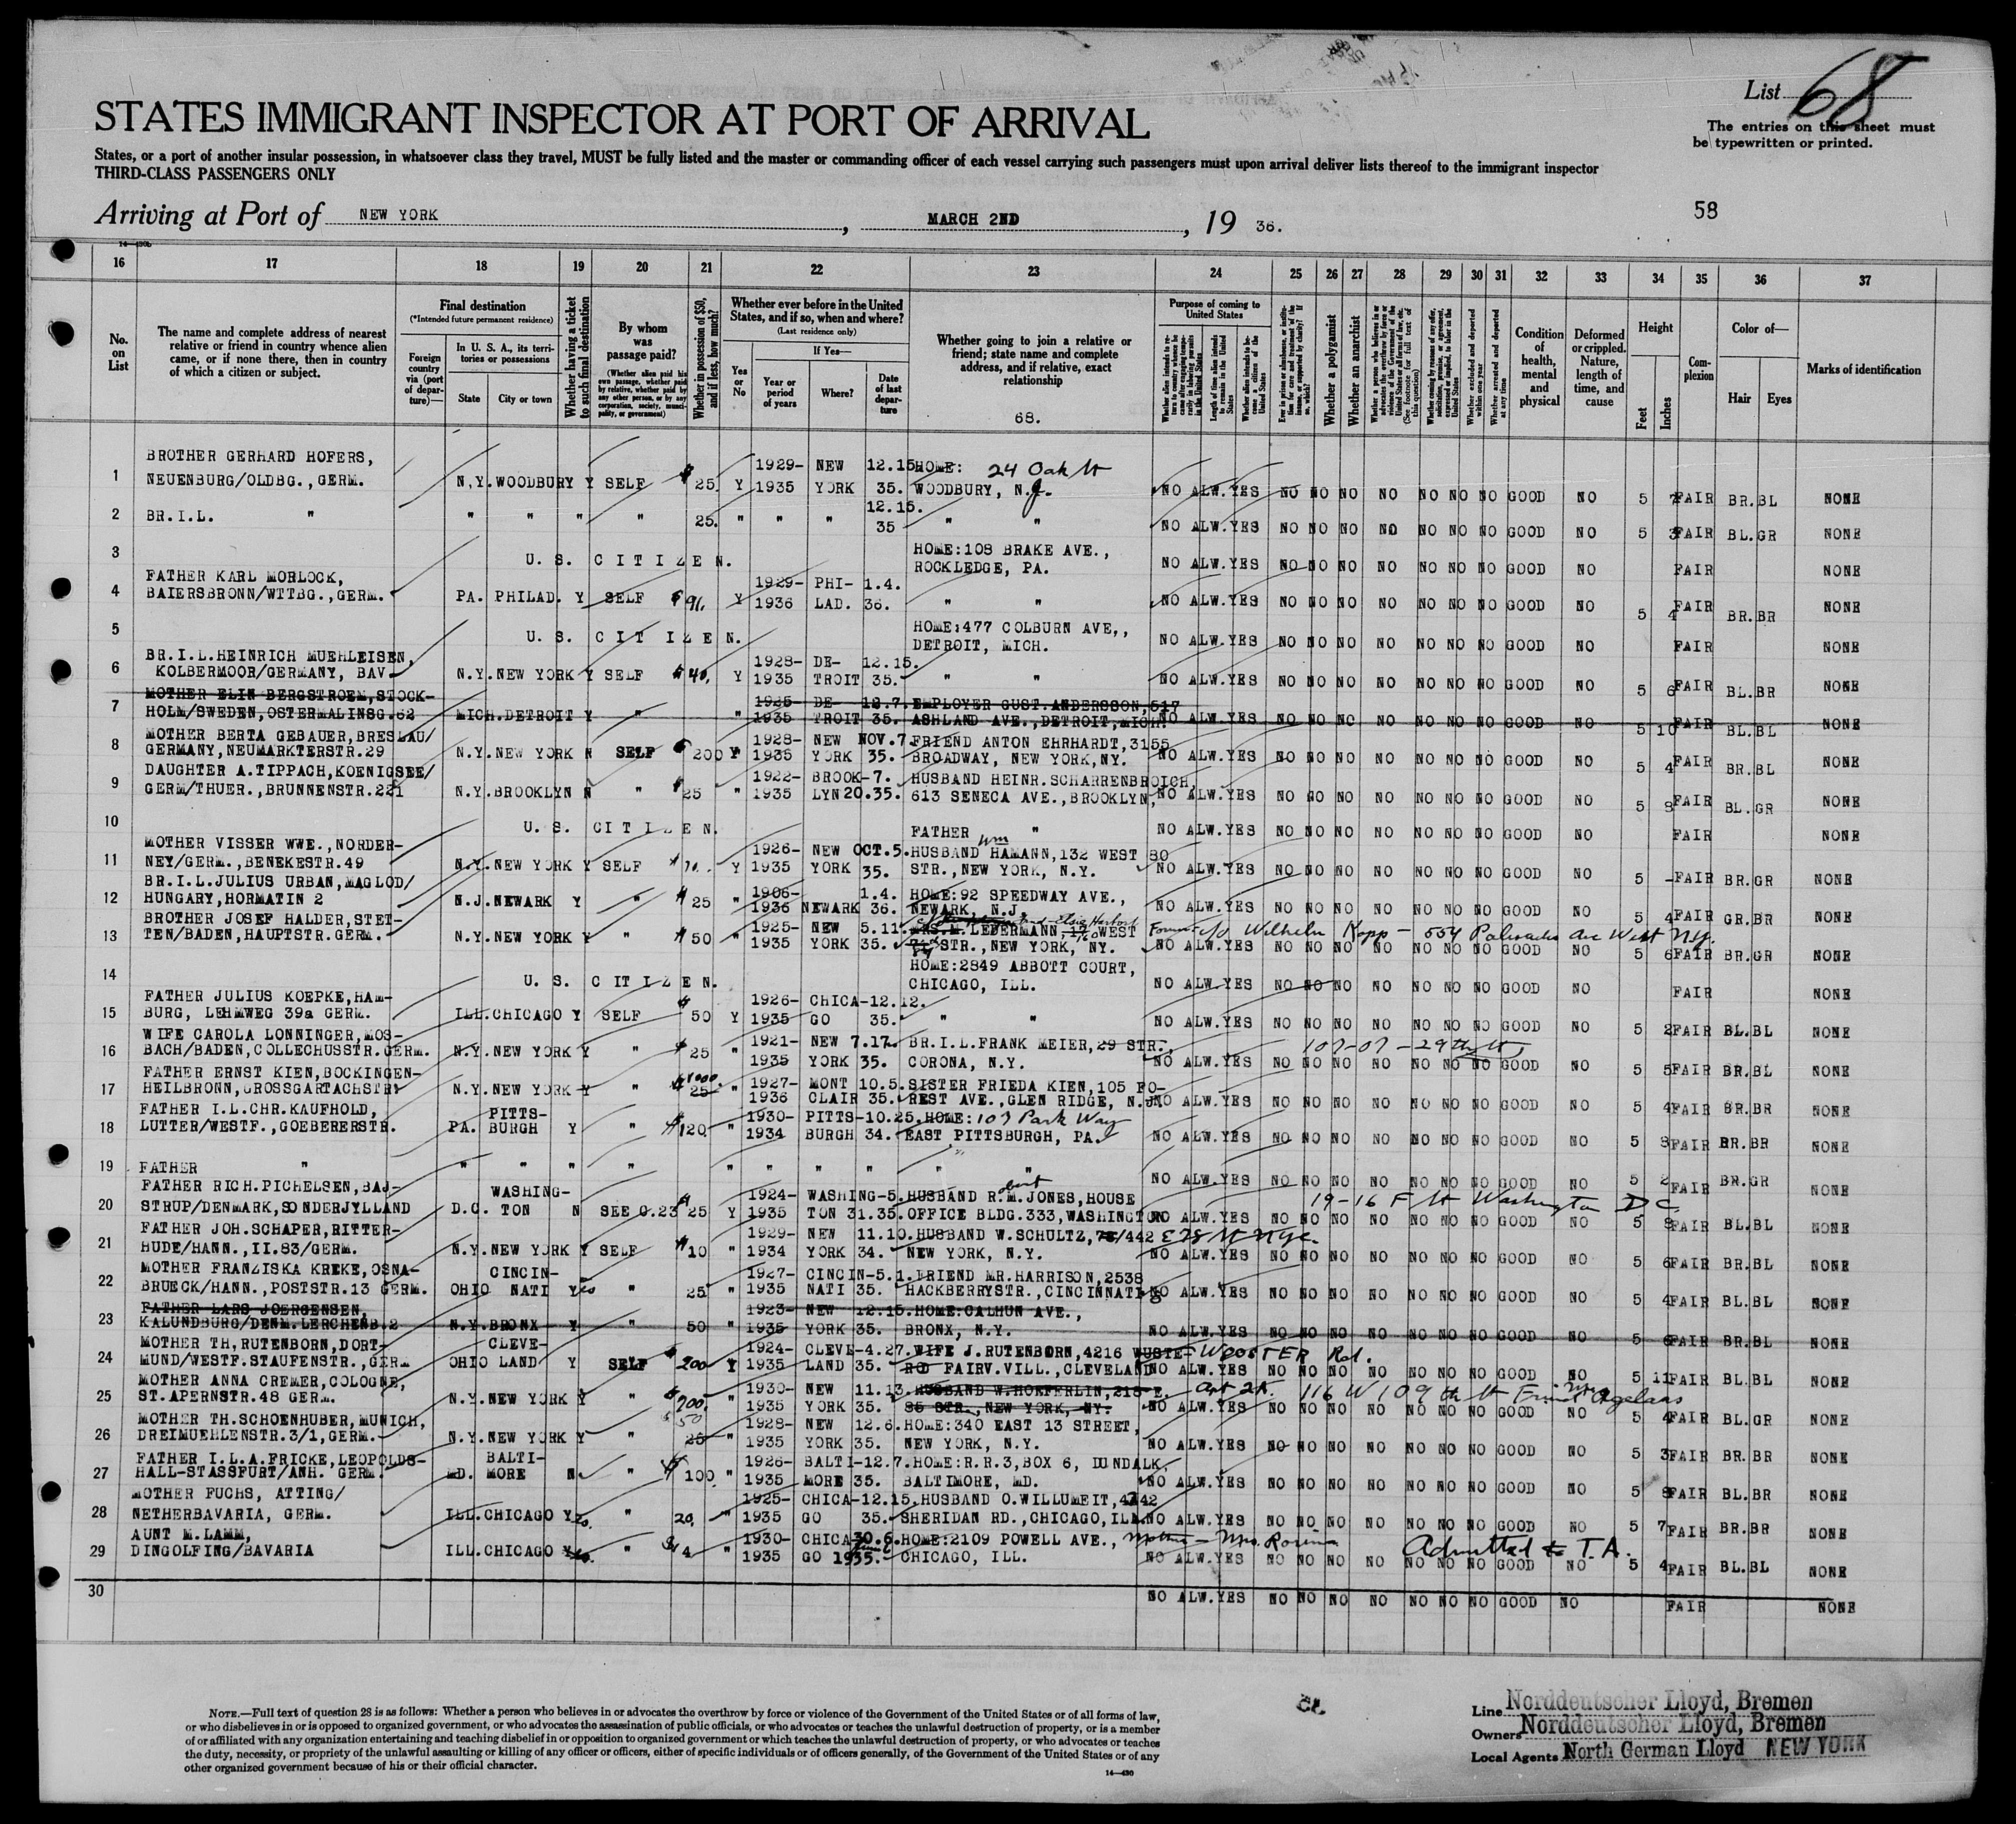 List 68
STATES IMMIGRANT INSPECTOR AT PORT OF ARRIVAL
The entries on this sheet must
be typewritten or printed.
States, or a port of another insular possession, in whatsoever class they travel, MUST be fully listed and the master or commanding officer of each vessel carrying such passengers must upon arrival deliver lists thereof to the immigrant inspector
THIRD-CLASS PASSENGERS ONLY
58
Arriving at Port of NEW YORK, MARCH 2ND, 19 36.
14—430b
16 17 18 19 20 21 22 23 24 25 26 27 28 29 30 31 32 33 34 35 36 37
No. on List
The name and complete address of nearest
relative or friend in country whence alien
came, or if none there, then in country
of which a citizen or subject.
Final destination
(*Intended future permanent residence)
Foreign country via (port of departure)—
In U. S. A., its territories or possessions
State City or town
Whether having a ticket to such final destination
By whom was passage paid?
(Whether alien paid his own passage, whether paid by relative, whether paid by any other person, or by any corporation, society, municipality, or government)
Whether in possession of $50, and if less, how much?
Whether ever before in the United
States, and if so, when and where?
(Last residence only)
Yes or No
If Yes—
Year or period of years
Where?
Date of last departure
Whether going to join a relative or
friend; state name and complete
address, and if relative, exact
relationship
68.
Purpose of coming to United States
Length of time alien intends to remain in the United States
Whether alien intends to become a citizen of the United States
Whether a polygamist
Whether an anarchist
(See footnote for full text of this question)
Whether excluded and deported within one year
Whether arrested and deported at any time
Condition of health, mental and physical
Deformed or crippled. Nature, length of time, and cause
Height
Feet Inches
Complexion
Color of—
Hair Eyes
Marks of identification
1 BROTHER GERHARD HOFERS, 1929- NEW 12.15. HOME: 24 Oak St
NEUENBURG/OLDBG., GERM. N.Y. WOODBURY Y SELF $ 25. Y 1935 YORK 35. WOODBURY, N.J. NO ALW. YES NO NO NO NO NO NO NO NO GOOD NO 5 7 FAIR BR. BL NONE
12.15.
2 BR.I.L. " " " " " 25. " " " 35 " " NO ALW. YES NO NO NO NO NO NO NO NO GOOD NO 5 3 FAIR BL. GR NONE
3 U. S. CITIZEN. HOME:108 BRAKE AVE.,
ROCKLEDGE, PA. NO ALW. YES NO NO NO NO NO NO NO NO GOOD NO FAIR NONE
4 FATHER KARL MORLOCK, 1929- PHI- 1.4.
BAIERSBRONN/WTTBG., GERM. PA. PHILAD. Y SELF $ 91. Y 1936 LAD. 36. " " NO ALW. YES NO NO NO NO NO NO NO NO GOOD NO 5 4 FAIR BR. BR NONE
5 U. S. CITIZEN. HOME:477 COLBURN AVE,,
DETROIT, MICH. NO ALW. YES NO NO NO NO NO NO NO NO GOOD NO FAIR NONE
6 BR.I.L.HEINRICH MUEHLEISEN, 1928- DE- 12.15.
KOLBERMOOR/GERMANY, BAV N.Y. NEW YORK Y SELF $ 40. Y 1935 TROIT 35. " " NO ALW. YES NO NO NO NO NO NO NO NO GOOD NO 5 6 FAIR BL. BR NONE
7 MOTHER ELIN BERGSTROEM, STOCK- 1925- DE- 12.7. EMPLOYER GUST. ANDERSSON, 517
HOLM/SWEDEN, OSTERMALINSG.62 MICH. DETROIT Y " " 1935 TROIT 35. ASHLAND AVE., DETROIT, MICH. NO ALW. YES NO NO NO NO NO NO NO NO GOOD NO 5 10 FAIR BL. BL NONE
8 MOTHER BERTA GEBAUER, BRESLAU/ 1928- NEW NOV.7. FRIEND ANTON EHRHARDT, 3155
GERMANY, NEUMARKTERSTR.29 N.Y. NEW YORK N SELF $ 200 Y 1935 YORK 35. BROADWAY, NEW YORK, NY. NO ALW. YES NO NO NO NO NO NO NO NO GOOD NO 5 4 FAIR BR. BL NONE
9 DAUGHTER A.TIPPACH, KOENIGSEE/ 1922- BROOK- 7. HUSBAND HEINR.SCHARRENBROICH,
GERM/THUER., BRUNNENSTR.221 N.Y. BROOKLYN N " $ 25 " 1935 LYN 20.35. 613 SENECA AVE., BROOKLYN, NO ALW. YES NO NO NO NO NO NO NO NO GOOD NO 5 8 FAIR BL. GR NONE
10 U. S. CITIZEN. FATHER " NO ALW. YES NO NO NO NO NO NO NO NO GOOD NO FAIR NONE
11 MOTHER VISSER WWE., NORDER- 1926- NEW OCT.5. HUSBAND Wm HAMANN, 132 WEST 80
NEY/GERM., BENEKESTR.49 N.Y. NEW YORK Y SELF $ Y 1935 YORK 35. STR., NEW YORK, N.Y. NO ALW. YES NO NO NO NO NO NO NO NO GOOD NO 5 - FAIR BR. GR NONE
12 BR.I.L.JULIUS URBAN, MAGLOD/ 1906- 1.4. HOME:92 SPEEDWAY AVE.,
HUNGARY, HORMATIN 2 N.J. NEWARK Y " $ 25 " 1936 NEWARK 36. NEWARK, N.J. NO ALW. YES NO NO NO NO NO NO NO NO GOOD NO 5 4 FAIR GR. BR NONE
13 BROTHER JOSEF HALDER, STET- 1925- NEW 5.11. MRS. M. LEDERMANN, WEST c/o Wilhelm Kopp - 554 Palisades Ave West N.Y.
TEN/BADEN, HAUPTSTR. GERM. N.Y. NEW YORK Y " $ 50 " 1935 YORK 35. STR., NEW YORK, NY. NO ALW. YES NO NO NO NO NO NO NO NO GOOD NO 5 6 FAIR BR. GR NONE
14 U. S. CITIZEN. HOME:2849 ABBOTT COURT,
CHICAGO, ILL. NO ALW. YES NO NO NO NO NO NO NO NO GOOD NO FAIR NONE
15 FATHER JULIUS KOEPKE, HAM- 1926- CHICA- 12.12.
BURG, LEHMWEG 39a GERM. ILL. CHICAGO Y SELF $ 50 Y 1935 GO 35. " " NO ALW. YES NO NO NO NO NO NO NO NO GOOD NO 5 2 FAIR BL. BL NONE
16 WIFE CAROLA LONNINGER, MOS- 1921- NEW 7.17. BR.I.L.FRANK MEIER, 29 STR., 107-07 - 29th St
BACH/BADEN, COLLECHUSSTR. GERM. N.Y. NEW YORK Y " $ 25 " 1935 YORK 35. CORONA, N.Y. NO ALW. YES NO NO NO NO NO NO NO NO GOOD NO 5 5 FAIR BR. BL NONE
17 FATHER ERNST KIEN, BOCKINGEN- $1000. 1927- MONT 10.5. SISTER FRIEDA KIEN, 105 FO-
HEILBRONN, GROSSGARTACHSTR N.Y. NEW YORK Y " 25 " 1936 CLAIR 35. REST AVE., GLEN RIDGE, N.J. NO ALW. YES NO NO NO NO NO NO NO NO GOOD NO 5 4 FAIR BR. BR NONE
18 FATHER I.L.CHR.KAUFHOLD, PITTS- 1930- PITTS- 10.25. HOME: 107 Park Way
LUTTER/WESTF., GOEBERERSTR. PA. BURGH Y " $ 120 " 1934 BURGH 34. EAST PITTSBURGH, PA. NO ALW. YES NO NO NO NO NO NO NO NO GOOD NO 5 8 FAIR BR. BR NONE
19 FATHER " " " " " " " " " " " NO ALW. YES NO NO NO NO NO NO NO NO GOOD NO 5 2 FAIR BR. GR NONE
20 FATHER RICH.PICHELSEN, BAJ- WASHING- 1924- WASHING- 5. HUSBAND R.M.JONES, HOUSE 19-16 F St Washington DC
STRUP/DENMARK, SONDERJYLLAND D.C. TON N SEE C.23 $ 25 Y 1935 TON 31.35. OFFICE BLDG.333, WASHINGTON NO ALW. YES NO NO NO NO NO NO NO NO GOOD NO 5 8 FAIR BL. BL NONE
21 FATHER JOH.SCHAPER, RITTER- 1929- NEW 11.10. HUSBAND W.SCHULTZ, 78/442 E 78 St NYC.
HUDE/HANN., II.83/GERM. N.Y. NEW YORK Y SELF $ 10 " 1934 YORK 34. NEW YORK, N.Y. NO ALW. YES NO NO NO NO NO NO NO NO GOOD NO 5 6 FAIR BR. BL NONE
22 MOTHER FRANZISKA KREKE, OSNA- CINCIN- 1927- CINCIN- 5.1. FRIEND MR.HARRISON, 2538
BRUECK/HANN., POSTSTR.13 GERM. OHIO NATI Yes " 25 " 1935 NATI 35. HACKBERRYSTR., CINCINNATI NO ALW. YES NO NO NO NO NO NO NO NO GOOD NO 5 4 FAIR BL. BL NONE
23 FATHER LARS JOERGENSEN, 1923- NEW 12.15. HOME:CALHUN AVE.,
KALUNDBURG/DENM.LERCHENB.2 N.Y. BRONX Y " 50 " 1935 YORK 35. BRONX, N.Y. NO ALW. YES NO NO NO NO NO NO NO NO GOOD NO 5 6 FAIR BR. BL NONE
24 MOTHER TH,RUTENBORN, DORT- CLEVE- 1924- CLEVE- 4.27. WIFE J.RUTENBORN, 4216 WUSTE- WOOSTER Rd.
MUND/WESTF.STAUFENSTR., GERM OHIO LAND Y SELF $ 200 Y 1935 LAND 35. ROD FAIRV.VILL., CLEVELAND NO ALW. YES NO NO NO NO NO NO NO NO GOOD NO 5 11 FAIR BL. BL NONE
25 MOTHER ANNA CREMER, COLOGNE, 1930- NEW 11.13. HUSBAND W.HOEFERLIN, 218 E. Apt 2K. 116 W 109th St
ST.APERNSTR.48 GERM. N.Y. NEW YORK Y " $ 200. " 1935 YORK 35. 85 STR., NEW YORK, NY. NO ALW. YES NO NO NO NO NO NO NO NO GOOD NO 5 4 FAIR BL. GR NONE
26 MOTHER TH.SCHOENHUBER, MUNICH, $50 1928- NEW 12.6. HOME:340 EAST 13 STREET,
DREIMUEHLENSTR.3/1, GERM. N.Y. NEW YORK Y " 25 " 1935 YORK 35. NEW YORK, N.Y. NO ALW. YES NO NO NO NO NO NO NO NO GOOD NO 5 3 FAIR BR. BR NONE
27 FATHER I.L.A.FRICKE, LEOPOLDS- BALTI- 1926- BALTI- 12.7. HOME:R.R.3, BOX 6, DUNDALK,
HALL-STASSFURT/ANH. GERM. MD. MORE N " $ 100 " 1935 MORE 35. BALTIMORE, MD. NO ALW. YES NO NO NO NO NO NO NO NO GOOD NO 5 8 FAIR BL. BR NONE
28 MOTHER FUCHS, ATTING/ 1925- CHICA- 12.15. HUSBAND O.WILLUMEIT, 4742
NETHERBAVARIA, GERM. ILL. CHICAGO Y " 20. " 1935 GO 35. SHERIDAN RD., CHICAGO, ILL. NO ALW. YES NO NO NO NO NO NO NO NO GOOD NO 5 7 FAIR BR. BR NONE
29 AUNT M.LAMM, 1930- CHICA 30.6. HOME:2109 POWELL AVE., Mother - Mrs. Rosina Admitted to T.A.
DINGOLFING/BAVARIA ILL. CHICAGO Y " $ 4 " 1935 GO 1935. CHICAGO, ILL. NO ALW. YES NO NO NO NO NO NO NO NO GOOD NO 5 4 FAIR BL. BL NONE
30 NO ALW. YES NO NO NO NO NO NO NO NO GOOD NO FAIR NONE
NOTE.—Full text of question 28 is as follows: Whether a person who believes in or advocates the overthrow by force or violence of the Government of the United States or of all forms of law,
or who disbelieves in or is opposed to organized government, or who advocates the assassination of public officials, or who advocates or teaches the unlawful destruction of property, or is a member
of or affiliated with any organization entertaining and teaching disbelief in or opposition to organized government or which teaches the unlawful destruction of property, or who advocates or teaches
the duty, necessity, or propriety of the unlawful assaulting or killing of any officer or officers, either of specific individuals or of officers generally, of the Government of the United States or of any
other organized government because of his or their official character.
14—430
Line Norddeutscher Lloyd, Bremen
Owners Norddeutscher Lloyd, Bremen
Local Agents North German Lloyd NEW YORK